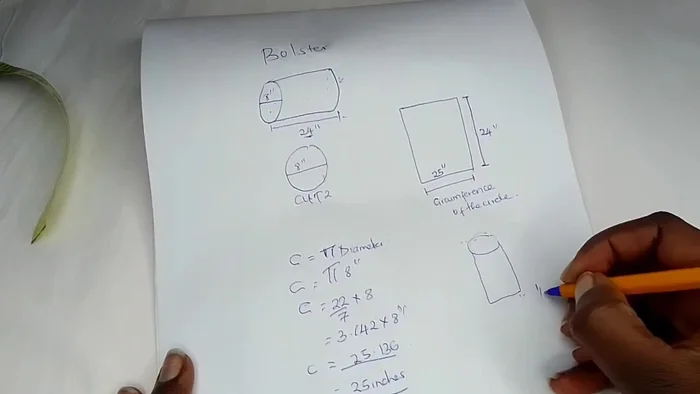 Bolster
8"
24"
8"
CUT 2
24"
25"
Circumference
of the circle.
C = π Diameter
C = π 8"
C = 22/7 × 8
= 3.142 × 8"
C = 25.136
= 25 inches